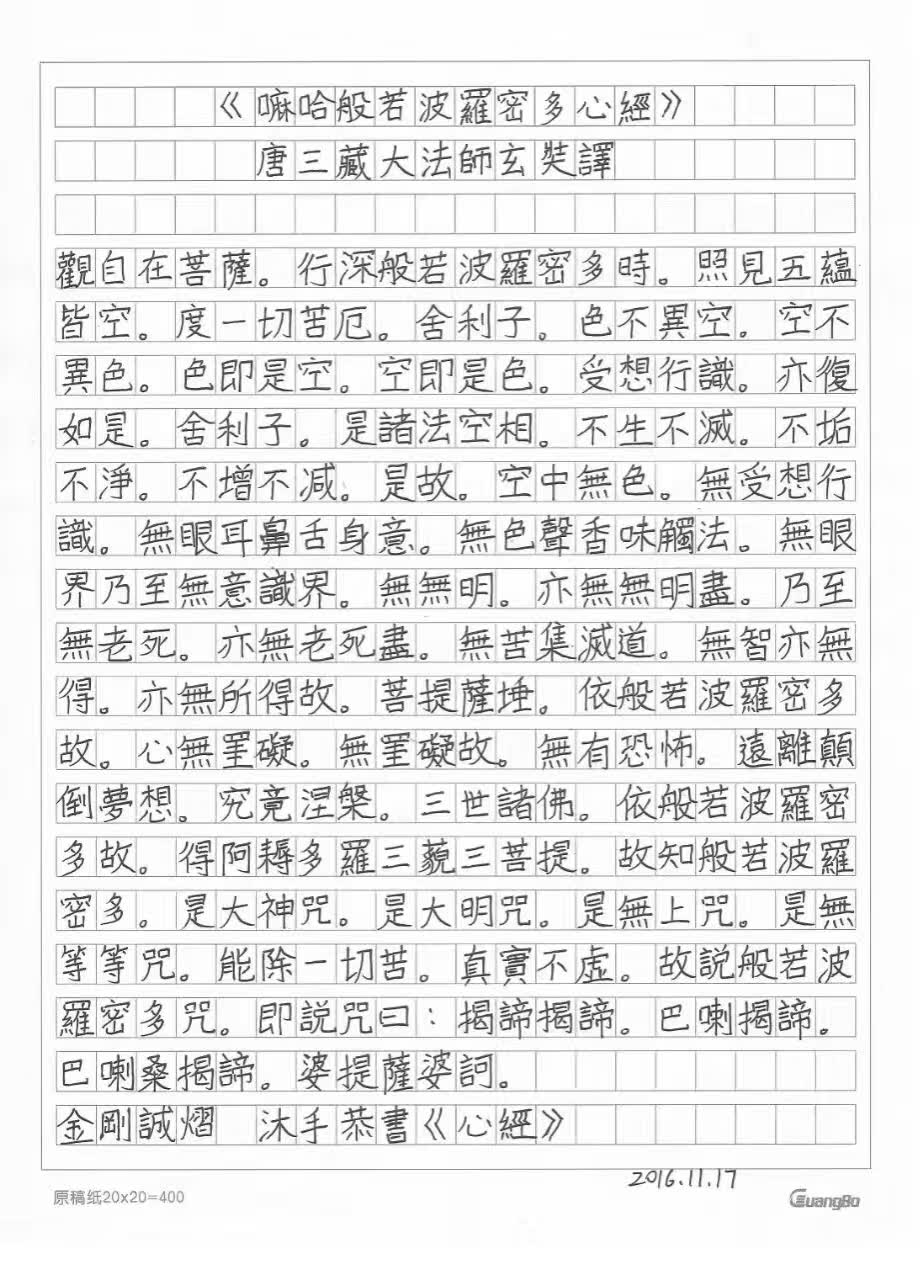 《嘛哈般若波羅密多心經》
唐三藏大法師玄奘譯
觀自在菩薩。行深般若波羅密多時。照見五蘊
皆空。度一切苦厄。舍利子。色不異空。空不
異色。色即是空。空即是色。受想行識。亦復
如是。舍利子。是諸法空相。不生不滅。不垢
不淨。不增不減。是故。空中無色。無受想行
識。無眼耳鼻舌身意。無色聲香味觸法。無眼
界乃至無意識界。無無明。亦無無明盡。乃至
無老死。亦無老死盡。無苦集滅道。無智亦無
得。亦無所得故。菩提薩埵。依般若波羅密多
故。心無罣礙。無罣礙故。無有恐怖。遠離顛
倒夢想。究竟涅槃。三世諸佛。依般若波羅密
多故。得阿耨多羅三藐三菩提。故知般若波羅
密多。是大神咒。是大明咒。是無上咒。是無
等等咒。能除一切苦。真實不虛。故説般若波
羅密多咒。即説咒曰：揭諦揭諦。巴喇揭諦。
巴喇桑揭諦。婆提薩婆訶。
金剛誠熠 沐手恭書《心經》
2016.11.17
原稿纸20x20=400 GuangBo